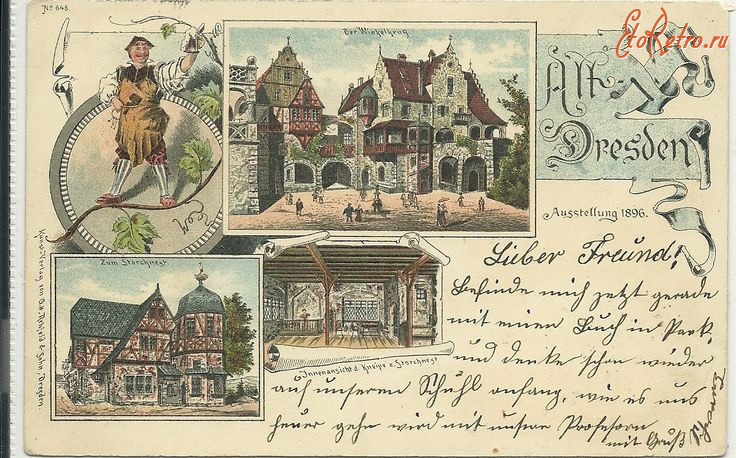 No 648.
EtoRetro.ru
Der Winkelkrug
Alt-
Dresden
Ausstellung 1896.
Zum Storchnest
Innenansicht d. Kneipe z. Storchnest
Lieber Freund!
Befinde mich jetzt gerade
mit einen Buch in Park,
und denke schon wieder
auf unseren Schuhl anfang, wie es uns
heuer gehn wird mit unsre Profesorn
mit Gruß
Kunst-Verlag von Rehfeld & Sohn, Dresden.